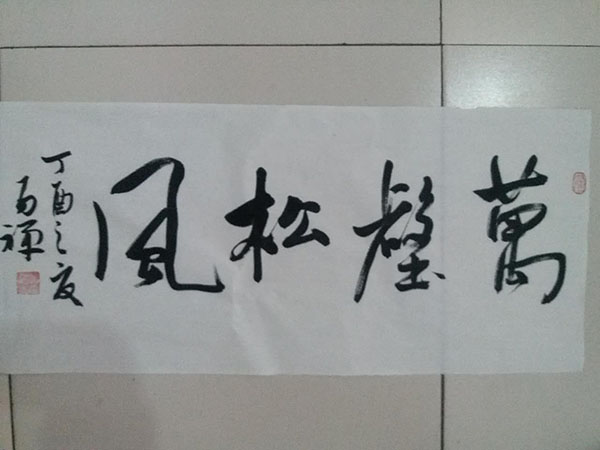 萬壑松風
丁酉之夏
禪